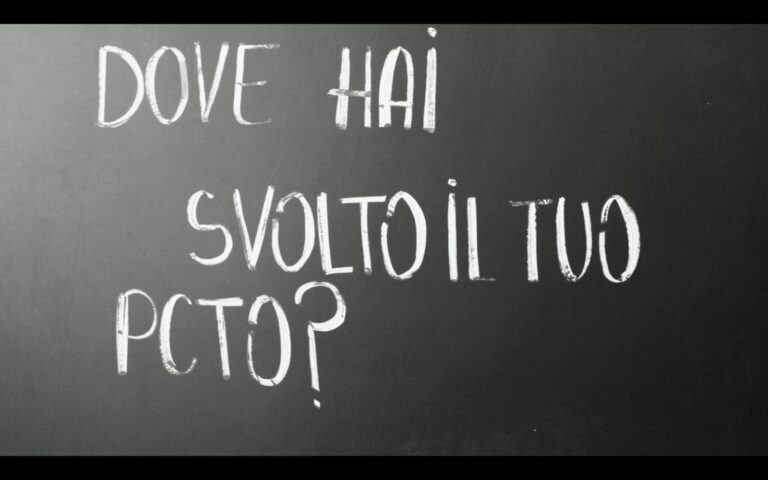 DOVE HAi
SVOLTO iL TUO
PCTO?